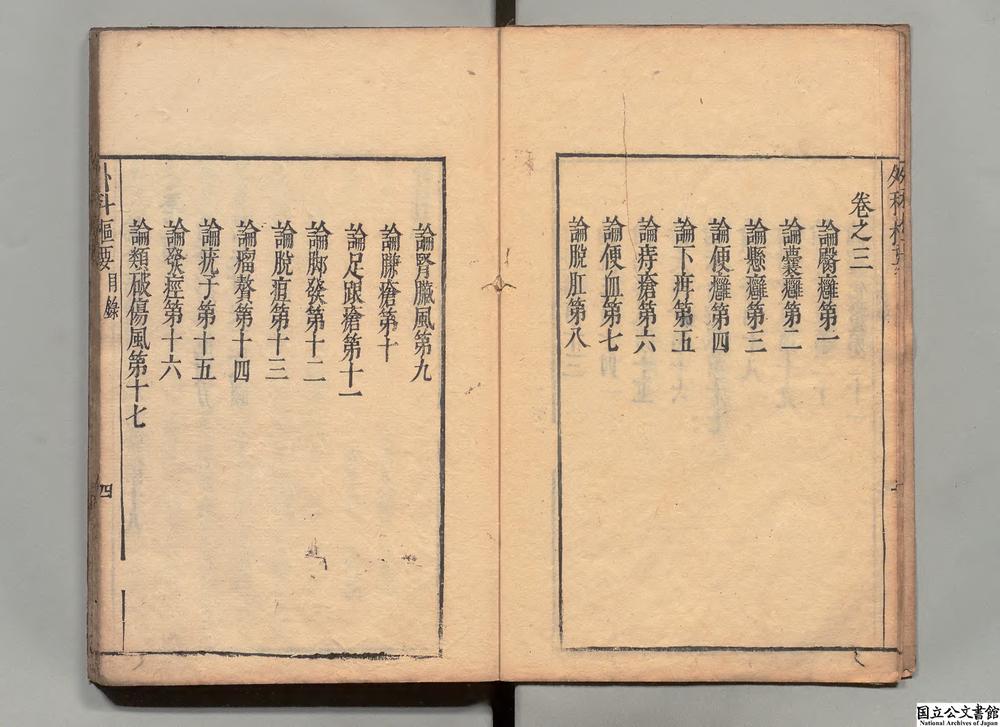 卷之三
論臀癰第一
論囊癰第二
論懸癰第三
論便癰第四
論下疳第五
論痔瘡第六
論便血第七
論脫肛第八
論腎臟風第九
論臁瘡第十
論足跟瘡第十一
論腳發第十二
論脫疽第十三
論瘤贅第十四
論疣子第十五
論發痙第十六
論類破傷風第十七
外科樞要 目錄
四
国立公文書館
National Archives of Japan